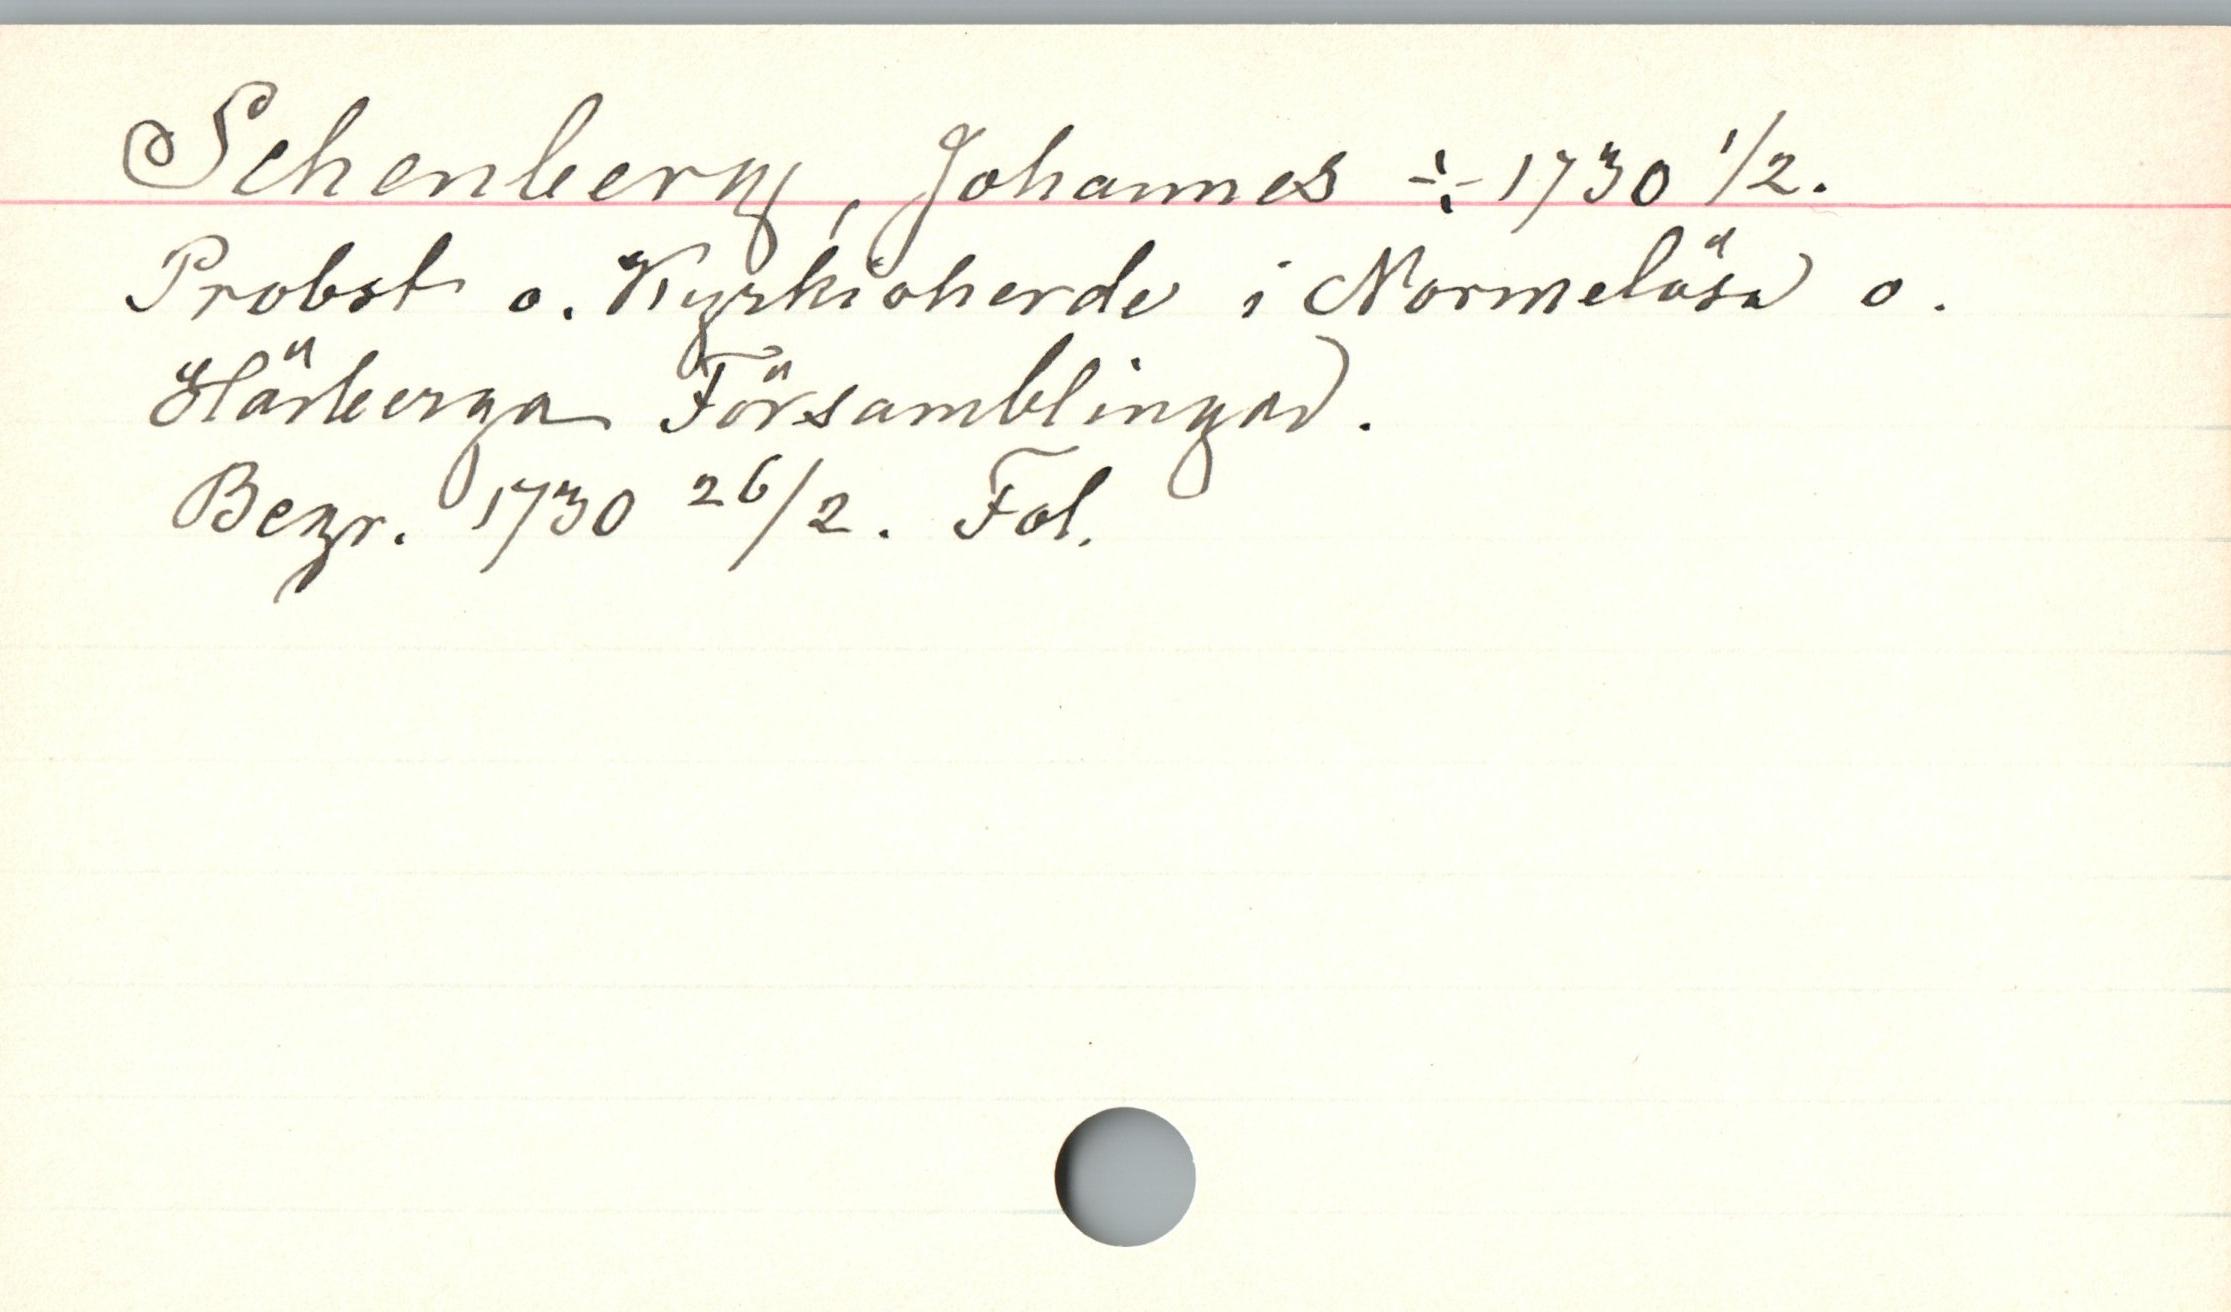 Schenberg, Johannes ÷ 1730 1/2.
Probst o. Kyrkioherde i Normelösa o.
Härberga Församblingar.
Begr. 1730 26/2. Fol.